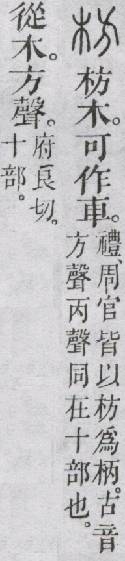 枋 枋木。可作車。
禮、周官皆以枋爲柄。古音
方聲丙聲同在十部也。
從木。方聲。
府良切。
十部。